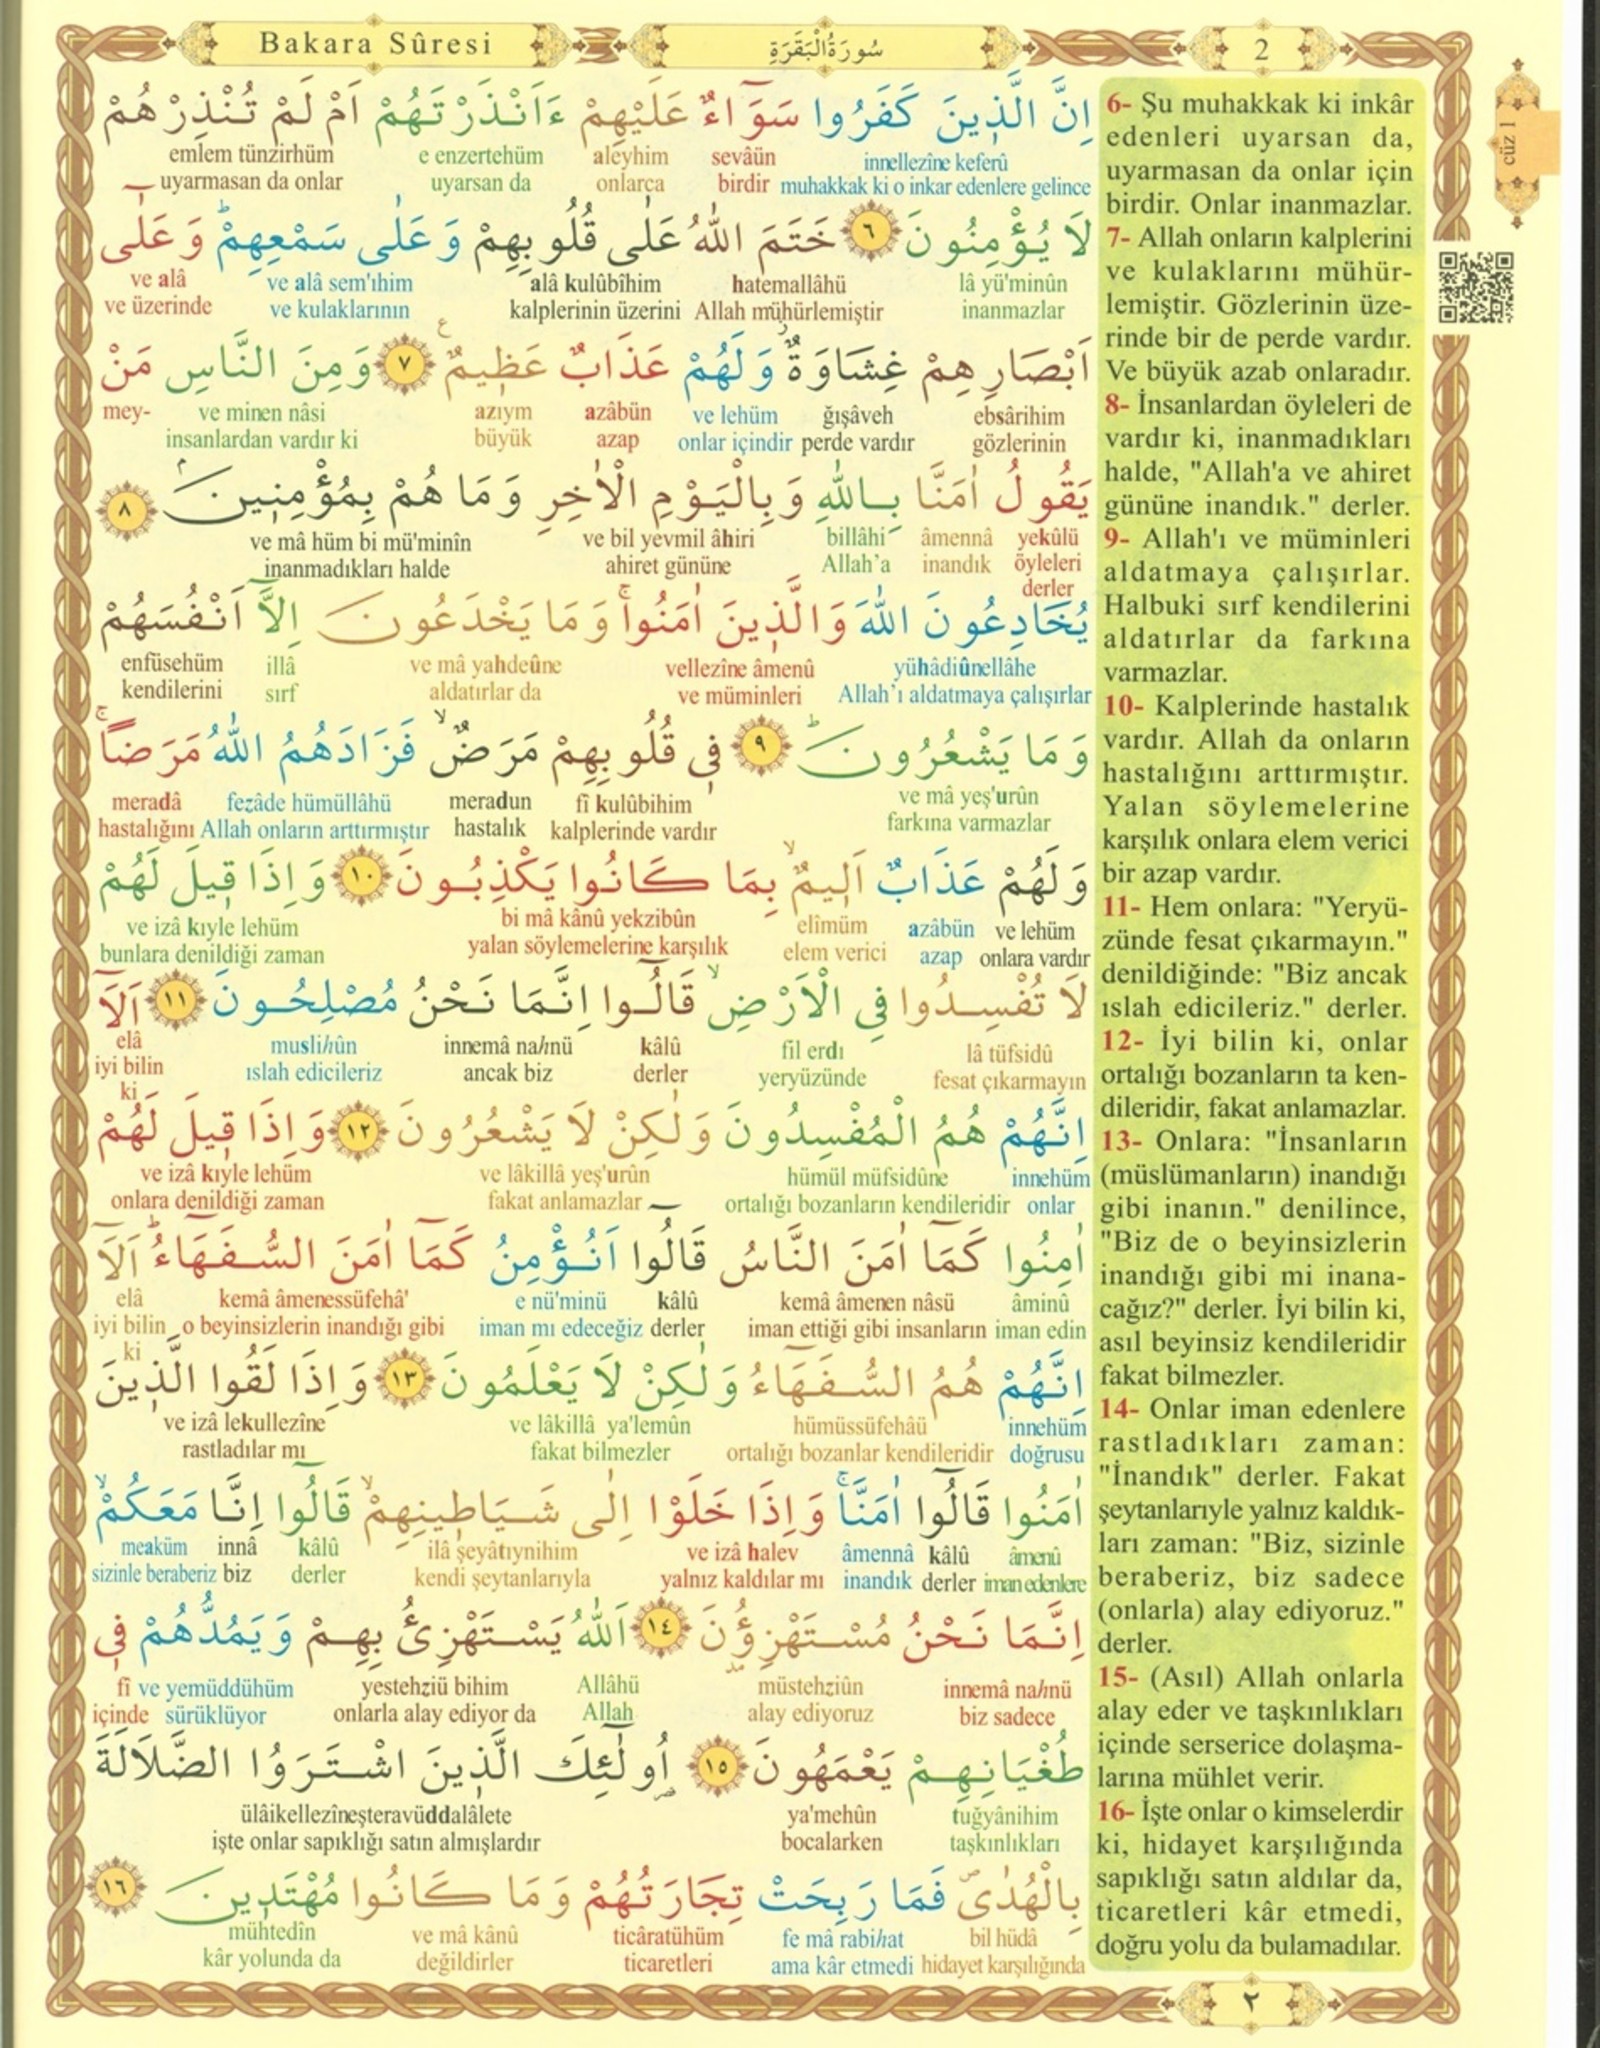 Bakara Sûresi
سُورَةُ الْبَقَرَةِ
2
اِنَّ الَّذ۪ينَ كَفَرُوا سَوَٓاءٌ عَلَيْهِمْ ءَاَنْذَرْتَهُمْ اَمْ لَمْ تُنْذِرْهُمْ
innellezîne keferû sevâün aleyhim e enzertehüm emlem tünzirhüm
muhakkak ki o inkar edenlere gelince birdir onlarca uyarsan da uyarmasan da onlar
لَا يُؤْمِنُونَ ٦ خَتَمَ اللّٰهُ عَلٰى قُلُوبِهِمْ وَعَلٰى سَمْعِهِمْۜ وَعَلٰٓى
lâ yü'minûn hatemallâhü alâ kulûbîhim ve alâ sem'ıhim ve alâ
inanmazlar Allah mühürlemiştir kalplerinin üzerini ve kulaklarının ve üzerinde
اَبْصَارِهِمْ غِشَاوَةٌۘ وَلَهُمْ عَذَابٌ عَظ۪يمٌ ٧ وَمِنَ النَّاسِ مَنْ
ebsârihim ğışâveh ve lehüm azâbün azıym ve minen nâsi mey-
gözlerinin perde vardır onlar içindir azap büyük insanlardan vardır ki
يَقُولُ اٰمَنَّا بِاللّٰهِ وَبِالْيَوْمِ الْاٰخِرِ وَمَا هُمْ بِمُؤْمِن۪ينَۢ ٨
yekûlü âmennâ billâhi ve bil yevmil âhiri ve mâ hüm bi mü'minîn
öyleleri inandık Allah'a ahiret gününe inanmadıkları halde
derler
يُخَادِعُونَ اللّٰهَ وَالَّذ۪ينَ اٰمَنُواۚ وَمَا يَخْدَعُونَ اِلَّٓا اَنْفُسَهُمْ
yühâdiûnellâhe vellezîne âmenû ve mâ yahdeûne illâ enfüsehüm
Allah'ı aldatmaya çalışırlar ve müminleri aldatırlar da sırf kendilerini
وَمَا يَشْعُرُونَۜ ٩ ف۪ي قُلُوبِهِمْ مَرَضٌۙ فَزَادَهُمُ اللّٰهُ مَرَضًاۚ
ve mâ yeş'urûn fî kulûbihim meradun fezâde hümüllâhü meradâ
farkına varmazlar kalplerinde vardır hastalık Allah onların arttırmıştır hastalığını
وَلَهُمْ عَذَابٌ اَل۪يمٌۙ بِمَا كَانُوا يَكْذِبُونَ ١٠ وَاِذَا ق۪يلَ لَهُمْ
ve lehüm azâbün elîmüm bi mâ kânû yekzibûn ve izâ kıyle lehüm
onlara vardır azap elem verici yalan söylemelerine karşılık bunlara denildiği zaman
لَا تُفْسِدُوا فِي الْاَرْضِۙ قَالُٓوا اِنَّمَا نَحْنُ مُصْلِحُونَ ١١ اَلَٓا
lâ tüfsidû fil erdı kâlû innemâ nahnü muslihûn elâ
fesat çıkarmayın yeryüzünde derler ancak biz ıslah edicileriz iyi bilin
ki
اِنَّهُمْ هُمُ الْمُفْسِدُونَ وَلٰكِنْ لَا يَشْعُرُونَ ١٢ وَاِذَا ق۪يلَ لَهُمْ
innehüm hümül müfsidûne ve lâkillâ yeş'urûn ve izâ kıyle lehüm
onlar ortalığı bozanların kendileridir fakat anlamazlar onlara denildiği zaman
اٰمِنُوا كَمَٓا اٰمَنَ النَّاسُ قَالُٓوا اَنُؤْمِنُ كَمَٓا اٰمَنَ السُّفَهَٓاءُۜ اَلَٓا
âminû kemâ âmenen nâsü kâlû e nü'minü kemâ âmenessüfehâ' elâ
iman edin iman ettiği gibi insanların derler iman mı edeceğiz o beyinsizlerin inandığı gibi iyi bilin
ki
اِنَّهُمْ هُمُ السُّفَهَٓاءُ وَلٰكِنْ لَا يَعْلَمُونَ ١٣ وَاِذَا لَقُوا الَّذ۪ينَ
innehüm hümüssüfehâü ve lâkillâ ya'lemûn ve izâ lekullezîne
doğrusu ortalığı bozanlar kendileridir fakat bilmezler rastladılar mı
اٰمَنُوا قَالُٓوا اٰمَنَّاۚ وَاِذَا خَلَوْا اِلٰى شَيَاط۪ينِهِمْۙ قَالُٓوا اِنَّا مَعَكُمْۙ
âmenû kâlû âmennâ ve izâ halev ilâ şeyâtıynihim kâlû innâ meaküm
iman edenlere derler inandık yalnız kaldılar mı kendi şeytanlarıyla derler biz sizinle beraberiz
اِنَّمَا نَحْنُ مُسْتَهْزِؤُ۫نَ ١٤ اَللّٰهُ يَسْتَهْزِئُ بِهِمْ وَيَمُدُّهُمْ ف۪ي
innemâ nahnü müstehziûn Allâhü yestehziü bihim ve yemüddühüm fî
biz sadece alay ediyoruz Allah onlarla alay ediyor da sürüklüyor içinde
طُغْيَانِهِمْ يَعْمَهُونَ ١٥ اُو۬لٰٓئِكَ الَّذ۪ينَ اشْتَرَوُا الضَّلَالَةَ
tuğyânihim ya'mehûn ülâikellezîneşteravüddalâlete
taşkınlıkları bocalarken işte onlar sapıklığı satın almışlardır
بِالْهُدٰىۖ فَمَا رَبِحَتْ تِجَارَتُهُمْ وَمَا كَانُوا مُهْتَد۪ينَ ١٦
bil hüdâ fe mâ rabihat ticâratühüm ve mâ kânû mühtedîn
hidayet karşılığında ama kâr etmedi ticaretleri değildirler kâr yolunda da
6- Şu muhakkak ki inkâr
edenleri uyarsan da,
uyarmasan da onlar için
birdir. Onlar inanmazlar.
7- Allah onların kalplerini
ve kulaklarını mühür-
lemiştir. Gözlerinin üze-
rinde bir de perde vardır.
Ve büyük azab onlaradır.
8- İnsanlardan öyleleri de
vardır ki, inanmadıkları
halde, "Allah'a ve ahiret
gününe inandık." derler.
9- Allah'ı ve müminleri
aldatmaya çalışırlar.
Halbuki sırf kendilerini
aldatırlar da farkına
varmazlar.
10- Kalplerinde hastalık
vardır. Allah da onların
hastalığını arttırmıştır.
Yalan söylemelerine
karşılık onlara elem verici
bir azap vardır.
11- Hem onlara: "Yeryü-
zünde fesat çıkarmayın."
denildiğinde: "Biz ancak
ıslah edicileriz." derler.
12- İyi bilin ki, onlar
ortalığı bozanların ta ken-
dileridir, fakat anlamazlar.
13- Onlara: "İnsanların
(müslümanların) inandığı
gibi inanın." denilince,
"Biz de o beyinsizlerin
inandığı gibi mi inana-
cağız?" derler. İyi bilin ki,
asıl beyinsiz kendileridir
fakat bilmezler.
14- Onlar iman edenlere
rastladıkları zaman:
"İnandık" derler. Fakat
şeytanlarıyle yalnız kaldık-
ları zaman: "Biz, sizinle
beraberiz, biz sadece
(onlarla) alay ediyoruz."
derler.
15- (Asıl) Allah onlarla
alay eder ve taşkınlıkları
içinde serserice dolaşma-
larına mühlet verir.
16- İşte onlar o kimselerdir
ki, hidayet karşılığında
sapıklığı satın aldılar da,
ticaretleri kâr etmedi,
doğru yolu da bulamadılar.
cüz 1
٢